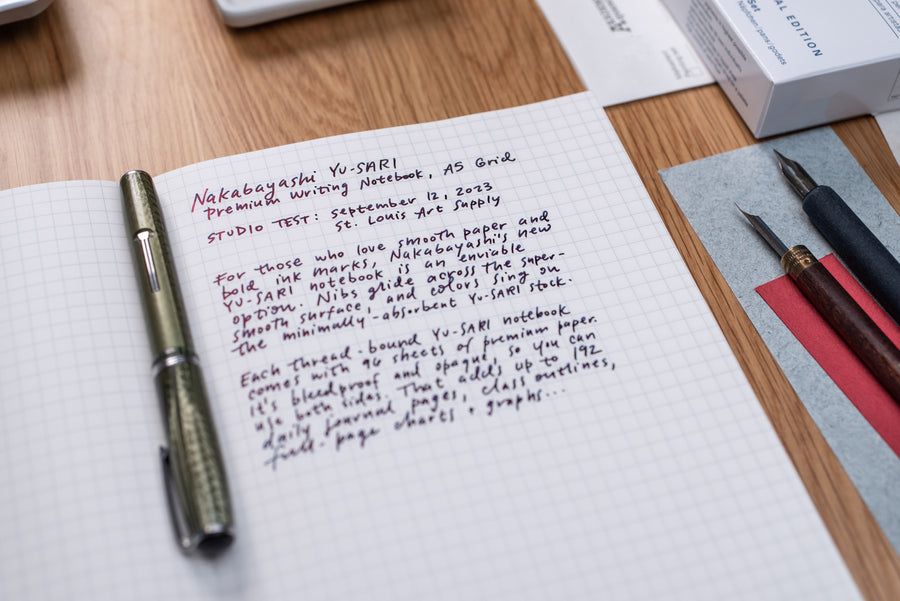 Nakabayashi YU-SARI
Premium Writing Notebook, A5 Grid
STUDIO TEST: September 12, 2023
St. Louis Art Supply
For those who love smooth paper and
bold ink marks, Nakabayashi's new
YU-SARI notebook is an enviable
option. Nibs glide across the super-
smooth surface, and colors sing on
the minimally-absorbent YU-SARI stock.
Each thread-bound YU-SARI notebook
comes with 96 sheets of premium paper.
It's bleedproof and opaque, so you can
use both sides. That adds up to 192
daily journal pages, class outlines,
full-page charts + graphs...
AL EDITION
Set
Näpfchen/pans/godets